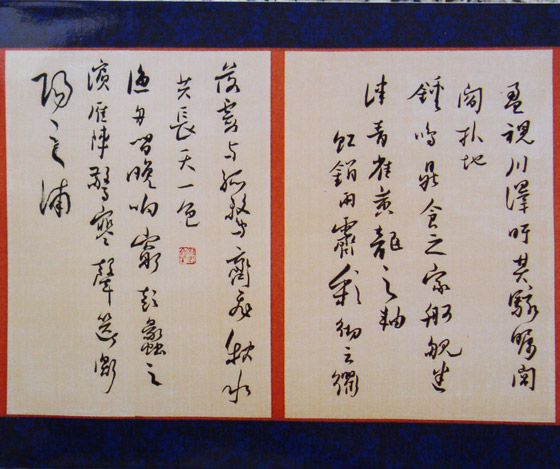 盈視川澤盱其駭矚閭
閻扑地
鍾鳴鼎食之家舸艦迷
津青雀黃龍之軸
虹銷雨霽彩彻云衢
落霞与孤鶩齊飛秋水
共長天一色
漁舟唱晚响窮彭蠡之
濱雁陣驚寒聲斷衡
陽之浦